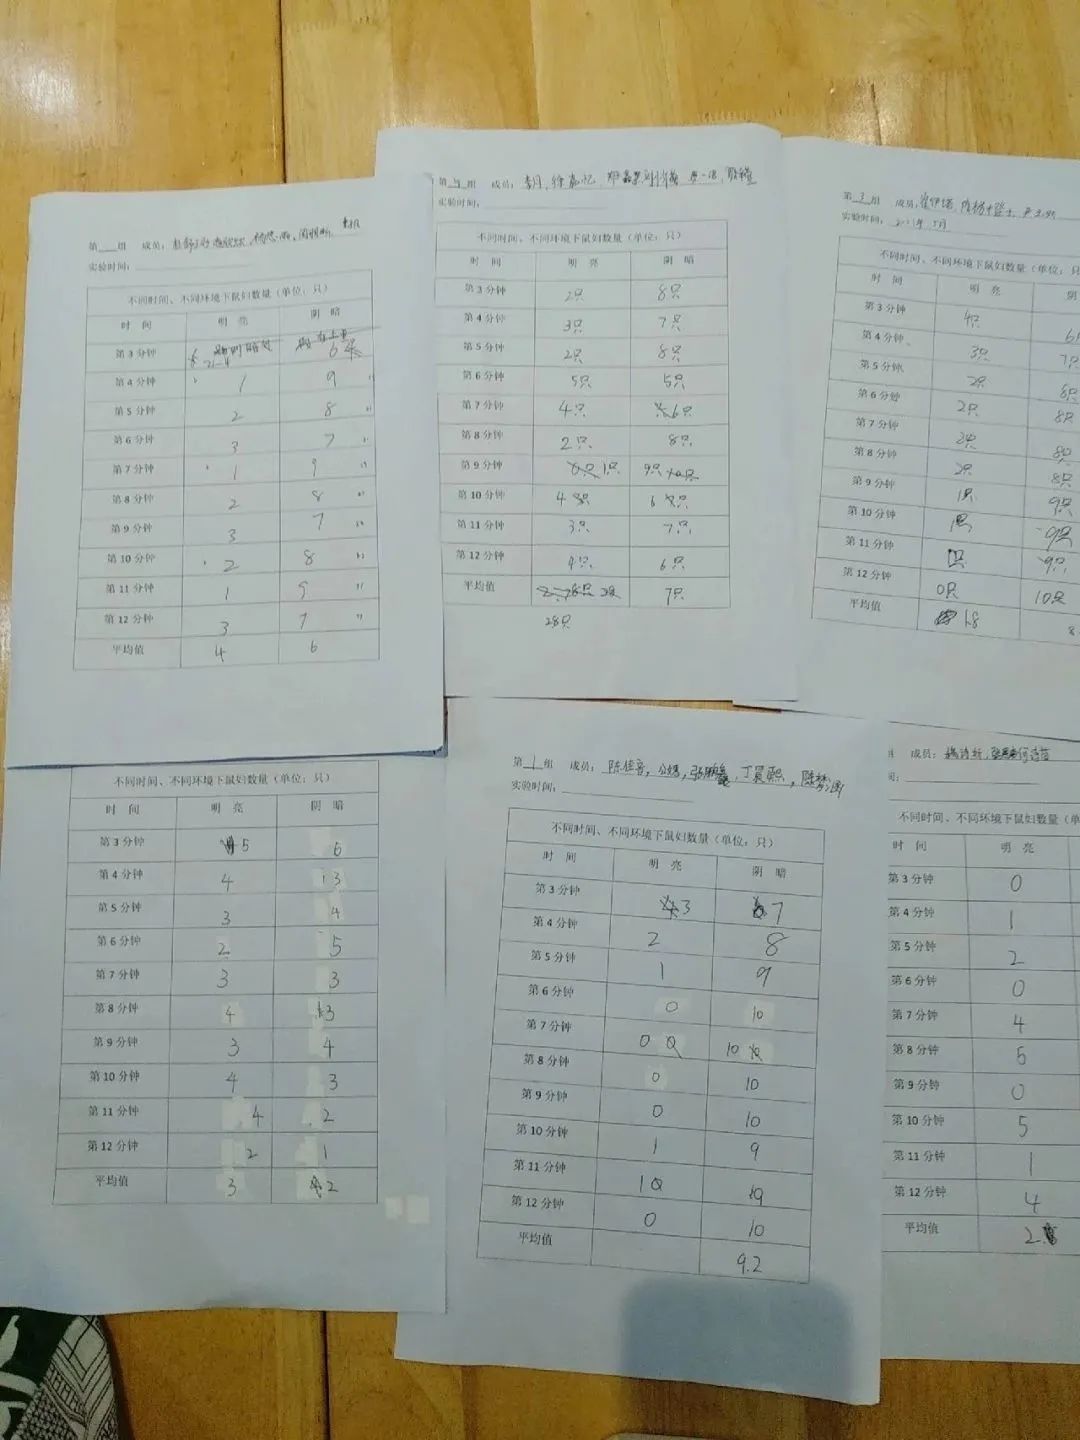 第 组 成员:
实验时间:
不同时间、不同环境下鼠妇数量(单位:只)
时 间 明 亮 阴 暗
第3分钟 6
第4分钟 1 9 "
第5分钟 2 8 "
第6分钟 3 7 "
第7分钟 1 9 "
第8分钟 2 8 "
第9分钟 3 7 "
第10分钟 2 8 "
第11分钟 1 9 "
第12分钟 3 7 "
平均值 4 6
第 组 成员: 李月、徐嘉忆、
实验时间:
不同时间、不同环境下鼠妇数量(单位:只)
时 间 明 亮 阴 暗
第3分钟 2只 8只
第4分钟 3只 7只
第5分钟 2只 8只
第6分钟 5只 5只
第7分钟 4只 6只
第8分钟 2只 8只
第9分钟 1只 9只
第10分钟 4只 6只
第11分钟 3只 7只
第12分钟 4只 6只
平均值 7只
28只
第 3 组 成员:
实验时间: 5月
不同时间、不同环境下鼠妇数量(单位:只
时 间 明 亮 阴
第3分钟 4只 6
第4分钟 3只 7只
第5分钟 2只 8只
第6分钟 2只 8只
第7分钟 2只 8只
第8分钟 2只 8只
第9分钟 1只 9只
第10分钟 1只 9只
第11分钟 1只 9只
第12分钟 0只 10只
平均值 1.8 8
不同时间、不同环境下鼠妇数量(单位:只)
时 间 明 亮 阴 暗
第3分钟 5 6
第4分钟 4 3
第5分钟 3 4
第6分钟 2 5
第7分钟 3 3
第8分钟 4 3
第9分钟 3 4
第10分钟 4 3
第11分钟 4 2
第12分钟 2 1
平均值 3 2
第 1 组 成员: 陈佳音,
实验时间:
不同时间、不同环境下鼠妇数量(单位:只)
时 间 明 亮 阴 暗
第3分钟 3 7
第4分钟 2 8
第5分钟 1 9
第6分钟 0 10
第7分钟 0 10
第8分钟 0 10
第9分钟 0 10
第10分钟 1 9
第11分钟
第12分钟 0 10
平均值 9.2
成员:
不同时间、不同环境下鼠妇数量(单
时 间 明 亮
第3分钟 0
第4分钟 1
第5分钟 2
第6分钟 0
第7分钟 4
第8分钟
第9分钟 0
第10分钟 5
第11分钟 1
第12分钟 4
平均值